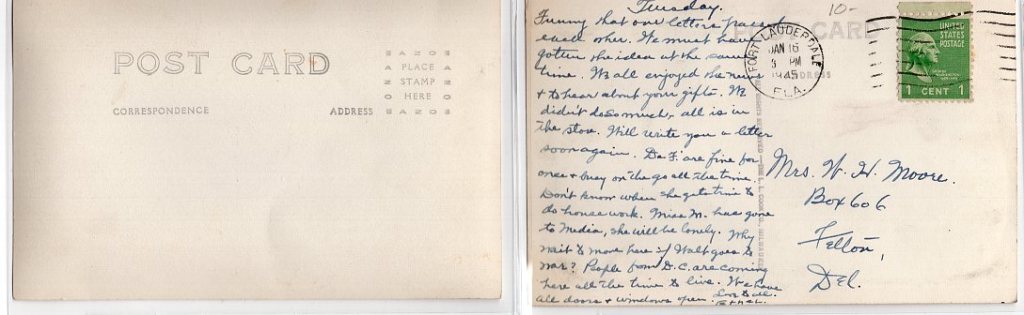 POST CARD
PLACE
STAMP
HERE
CORRESPONDENCE
ADDRESS
AZO
Tuesday.
Funny that our letters passed
each other. We must have
gotten the idea at the same
time. We all enjoyed the news
& to hear about your gifts. We
didn't do so much, all is in
the store. Will write you a letter
soon again. D & F. are fine for
once & busy on the go all the time.
Don't know when she gets time to
do house work. Miss M. has gone
to Media, she will be lonely. Why
wait to move here if Walt goes to
war? People from D.C. are coming
here all the time to live. We have
all doors & windows open. Love to all.
Ethel.
10-
POST CARD
ADDRESS
FORT LAUDERDALE
JAN 16
3 PM
1945
FLA.
UNITED
STATES
POSTAGE
1 CENT 1
Mrs. W. H. Moore.
Box 606
Felton,
Del.